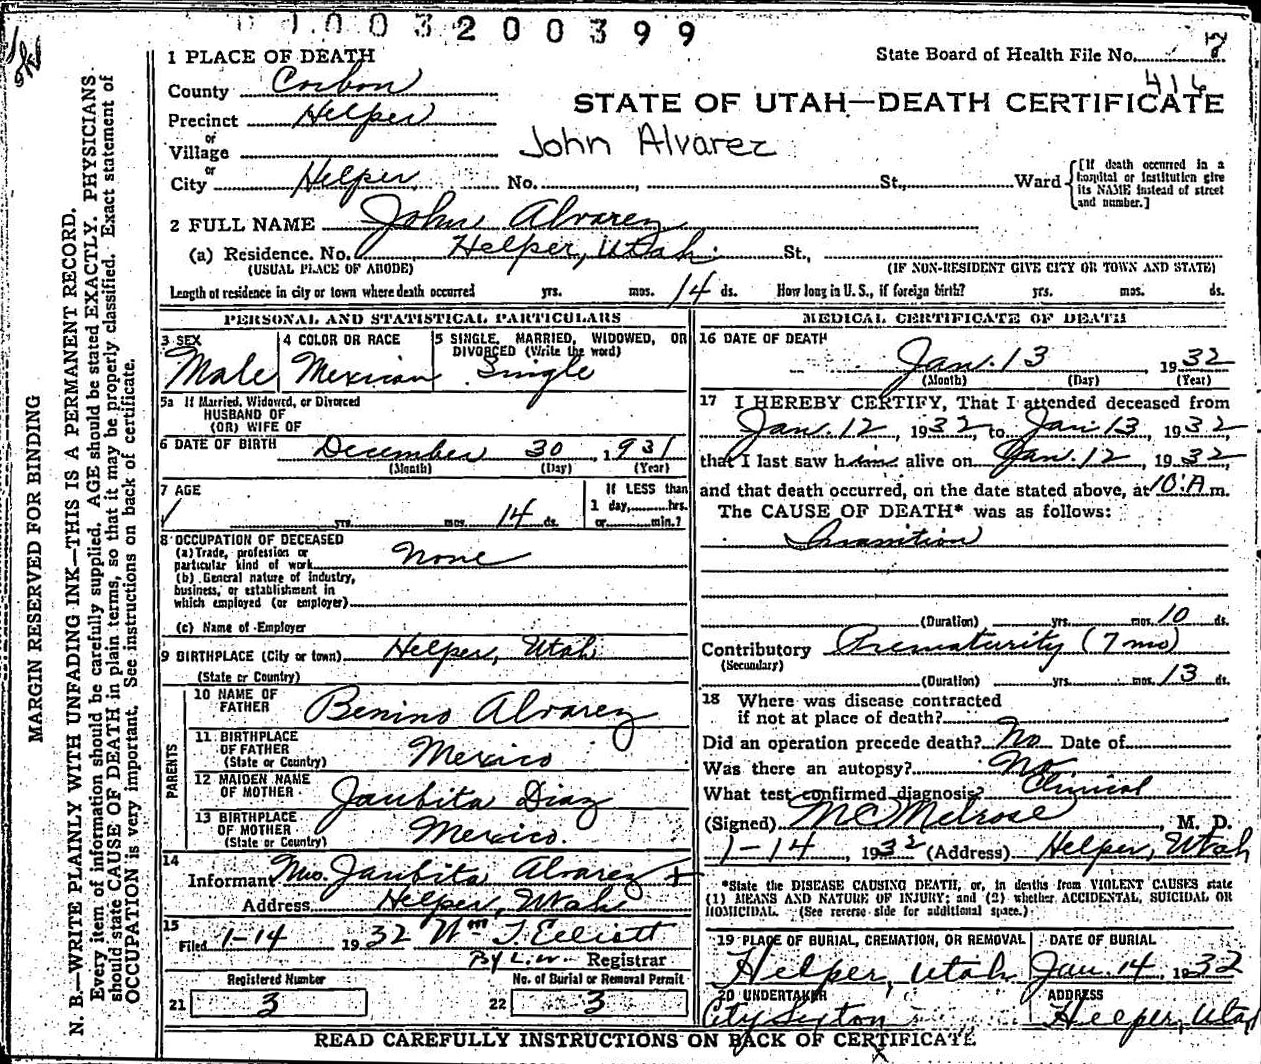 003200399
1 PLACE OF DEATH
State Board of Health File No. 7
County Carbon
416
STATE OF UTAH—DEATH CERTIFICATE
Precinct Helper
or
Village
John Alvarez
or
City Helper No. , St., Ward
[If death occurred in a hospital or institution give its NAME instead of street and number.]
2 FULL NAME John Alvarez
(a) Residence. No. Helper, Utah St.,
(USUAL PLACE OF ABODE) (IF NON-RESIDENT GIVE CITY OR TOWN AND STATE)
Length of residence in city or town where death occurred yrs. mos. 14 ds. How long in U. S., if foreign birth? yrs. mos. ds.
PERSONAL AND STATISTICAL PARTICULARS
3 SEX
Male
4 COLOR OR RACE
Mexican
5 SINGLE, MARRIED, WIDOWED, OR
DIVORCED (Write the word)
Single
5a If Married, Widowed, or Divorced
HUSBAND OF
(OR) WIFE OF
6 DATE OF BIRTH December 30, 1931
(Month) (Day) (Year)
7 AGE
yrs. mos. 14 ds.
If LESS than
1 day, hrs.
or min.?
8 OCCUPATION OF DECEASED
(a) Trade, profession or
particular kind of work None
(b) General nature of industry,
business, or establishment in
which employed (or employer)
(c) Name of Employer
9 BIRTHPLACE (City or town) Helper, Utah
(State or Country)
PARENTS
10 NAME OF
FATHER Benino Alvarez
11 BIRTHPLACE
OF FATHER Mexico
(State or Country)
12 MAIDEN NAME
OF MOTHER Janbita Diaz
13 BIRTHPLACE
OF MOTHER Mexico.
(State or Country)
14
Informant Mrs. Janbita Alvarez +
Address Helper, Utah
15
Filed 1-14 1932 Wm T. Elliott
By L.W. Registrar
Registered Number
21 3
No. of Burial or Removal Permit
22 3
MEDICAL CERTIFICATE OF DEATH
16 DATE OF DEATH
Jan. 13, 1932
(Month) (Day) (Year)
17 I HEREBY CERTIFY, That I attended deceased from
Jan. 12, 1932, to Jan. 13, 1932,
that I last saw him alive on Jan. 12, 1932,
and that death occurred, on the date stated above, at 10:A m.
The CAUSE OF DEATH* was as follows:
Inanition
(Duration) yrs. mos. 10 ds.
Contributory Prematurity (7 mo)
(Secondary)
(Duration) yrs. mos. 13 ds.
18 Where was disease contracted
if not at place of death?
Did an operation precede death? No Date of
Was there an autopsy? No
What test confirmed diagnosis? Clinical
(Signed) MC Melrose, M. D.
1-14, 1932 (Address) Helper, Utah
*State the DISEASE CAUSING DEATH, or, in deaths from VIOLENT CAUSES state
(1) MEANS AND NATURE OF INJURY; and (2) whether ACCIDENTAL, SUICIDAL OR
HOMICIDAL. (See reverse side for additional space.)
19 PLACE OF BURIAL, CREMATION, OR REMOVAL
Helper, Utah
DATE OF BURIAL
Jan. 14, 1932
20 UNDERTAKER
City Sexton
ADDRESS
Helper, Utah
READ CAREFULLY INSTRUCTIONS ON BACK OF CERTIFICATE
MARGIN RESERVED FOR BINDING
N. B.—WRITE PLAINLY WITH UNFADING INK—THIS IS A PERMANENT RECORD.
Every item of information should be carefully supplied. AGE should be stated EXACTLY. PHYSICIANS
should state CAUSE OF DEATH in plain terms, so that it may be properly classified. Exact statement of
OCCUPATION is very important. See instructions on back of certificate.